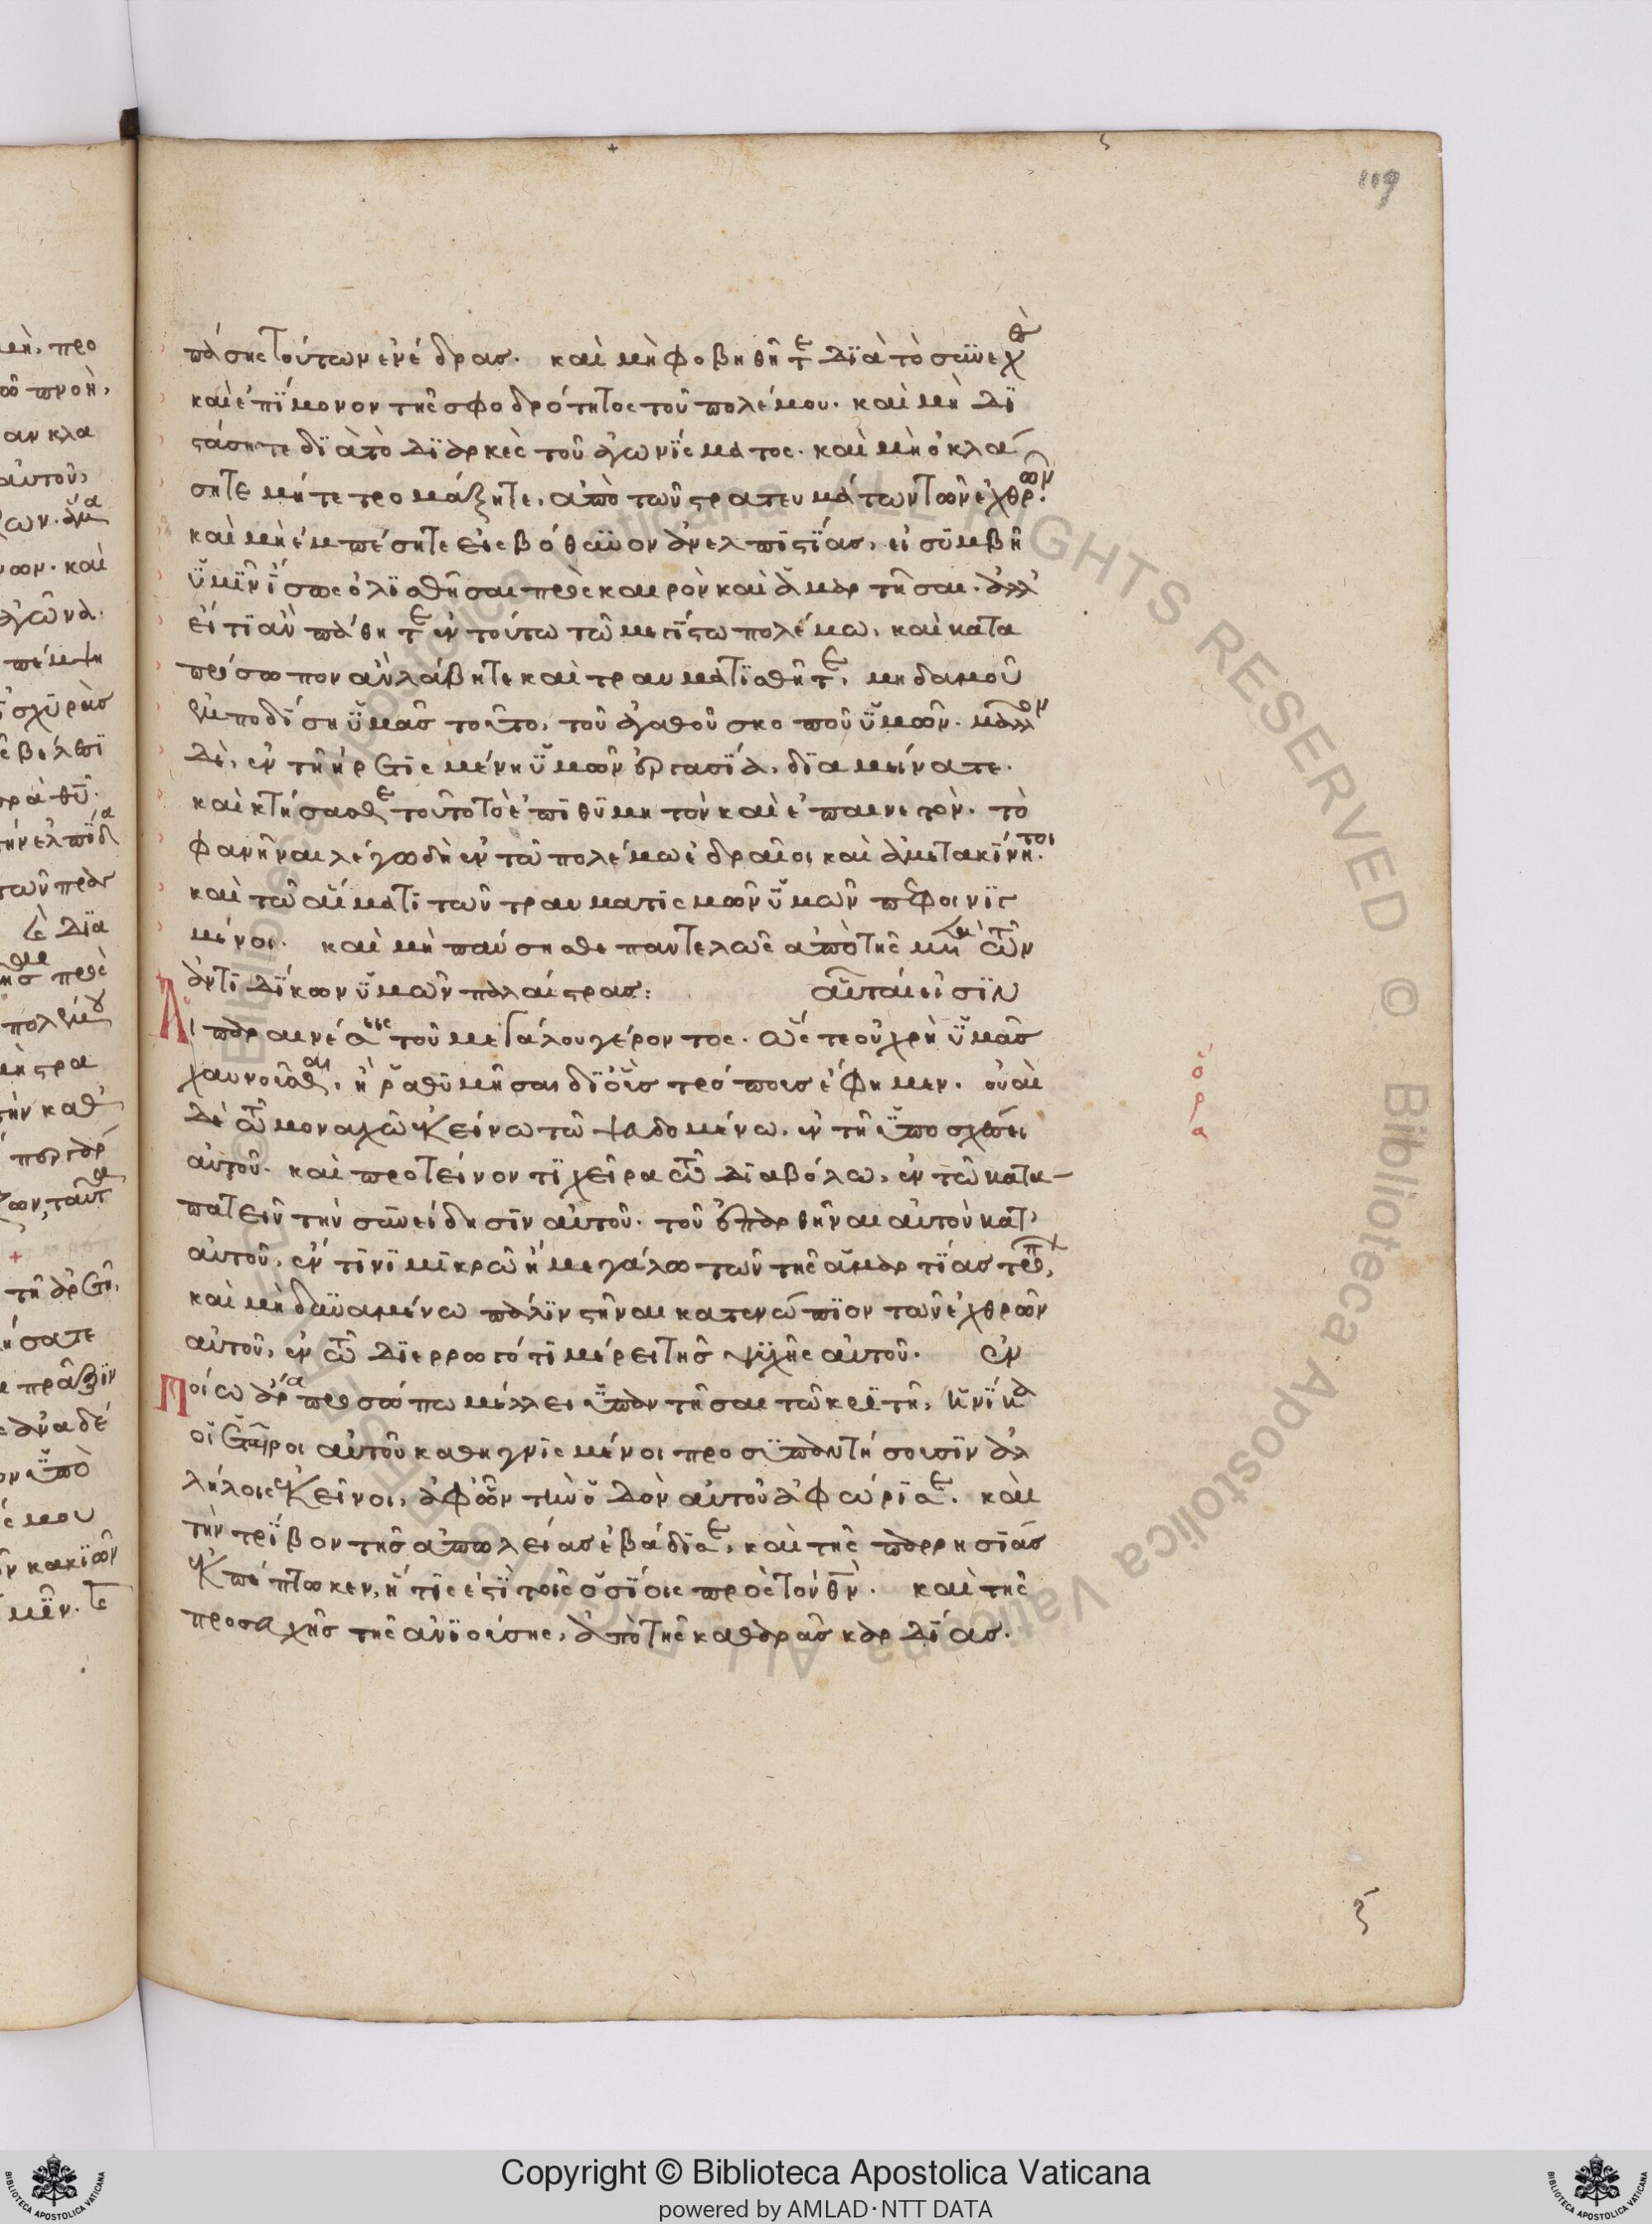 119
πάσης τούτων ἐνέδρας. καὶ μὴ φοβηθῆτε διὰ τὸ συνεχὲς
καὶ ἐπίμονον τῆς σφοδρότητος τοῦ πολέμου. καὶ μὴ δι
στάσητε διὰ τὸ διαρκὲς τοῦ ἀγωνίσματος. καὶ μὴ ὀκλά
σητε μήτε τρομάξητε, ἀπὸ τῶν στρατευμάτων τῶν ἐχθρῶν.
καὶ μὴ ἐμπέσητε εἰς βόθυνον ἀνελπιστίας, εἰ συμβῆ
ὑμῖν ἴσως ὀλισθῆσαι πρὸς καιρὸν καὶ ἁμαρτῆσαι. ἀλλ'
εἴ τι ἂν πάθητε ἐν τούτω τῶ μεγίστω πολέμω, καὶ κατα
πρόσωπον ἂν λάβητε καὶ τραυματισθῆτε, μηδαμοῦ
ἐμποδίση ὑμᾶς τοῦτο, τοῦ ἀγαθοῦ σκοποῦ ὑμῶν. μᾶλλον
δὲ, ἐν τῆ ἠργισμένη ὑμῶν ἐργασία, διαμείνατε.
καὶ κτήσασθε τοῦτο τὸ ἐπιθυμητὸν καὶ ἐπαινετόν. τὸ
φανῆναι λέγω δὴ ἐν τῶ πολέμω ἑδραῖοι καὶ ἀμετακίνητοι.
καὶ τῶ αἵματι τῶν τραυματισμῶν ὑμῶν πεφοινιγ
μένοι. καὶ μὴ παύσησθε παντελῶς ἀπὸ τῆς μετὰ τῶν
ἀντιδίκων ὑμῶν παλαίστρας: αὗται εἰσὶν
Αἱ παραινέσεις τοῦ μεγάλου γέροντος. ὥστε οὐ χρὴ ὑμᾶς
χαυνοῦσθαι, ἢ ῥαθυμῆσαι δι' οἷς τρόποις ἔφημεν. οὐαὶ
δὲ τῶ μοναχῶ ἐκείνω τῶ ψευδομένω, ἐν τῆ ὑποσχέσει
αὐτοῦ. καὶ προτείνοντι χεῖρα τῶ διαβόλω, ἐν τῶ κατα
πατεῖν τὴν συνείδησιν αὐτοῦ. τοῦ ἐπαρθῆναι αὐτὸν κατ'
αὐτοῦ, ἔν τινι μικρῶ ἢ μεγάλω τῶν τῆς ἁμαρτίας τρόπων,
καὶ μὴ δυναμένω πάλιν στῆναι κατενώπιον τῶν ἐχθρῶν
αὐτοῦ, ἐν τῶ διερρωγότι μέρει τῆς ψυχῆς αὐτοῦ. ἐν
Ποίω ἄρα προσώπω μέλλει ὑπαντῆσαι τῶ κριτῆ, ἡνίκα
οἱ ἑταῖροι αὐτοῦ καθηγνισμένοι προσυπαντήσουσιν ἀλ
λήλοις ἐκεῖνοι, ἀφ' ὧν τὴν ὁδὸν αὐτοῦ ἀφώρισε. καὶ
τὴν τρίβον τῆς ἀπωλείας ἐβάδισε, καὶ τῆς παρρησίας
ἐκπέπτωκεν, ἥτις ἐστὶ τοῖς ὁσίοις πρὸς τὸν θν̄. καὶ τῆς
προσευχῆς τῆς ἀνιούσης, ἀπὸ τῆς καθαρᾶς καρδίας.
ὅ
ρ
α
Copyright © Biblioteca Apostolica Vaticana
powered by AMLAD·NTT DATA